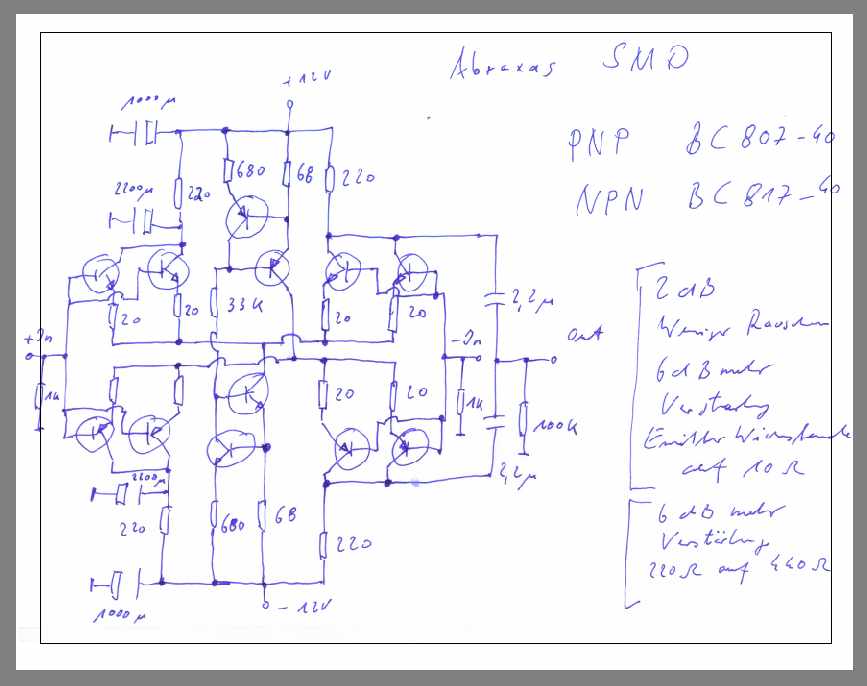 Abraxas SMD
+12V
1000µ
PNP BC 807-40
680
68
220
2200µ
220
NPN BC 817-40
33K
2 dB
2,2µ
20
20
20
20
Weniger Rauschen
+In
-In
out
6 dB mehr
1K
20
20
1K
100K
Verstärkung
Emitter Widerstände
auf 10 Ω
2200µ
2,2µ
220
680
68
6 dB mehr
220
Verstärkung
220 Ω auf 440 Ω
1000µ
-12V